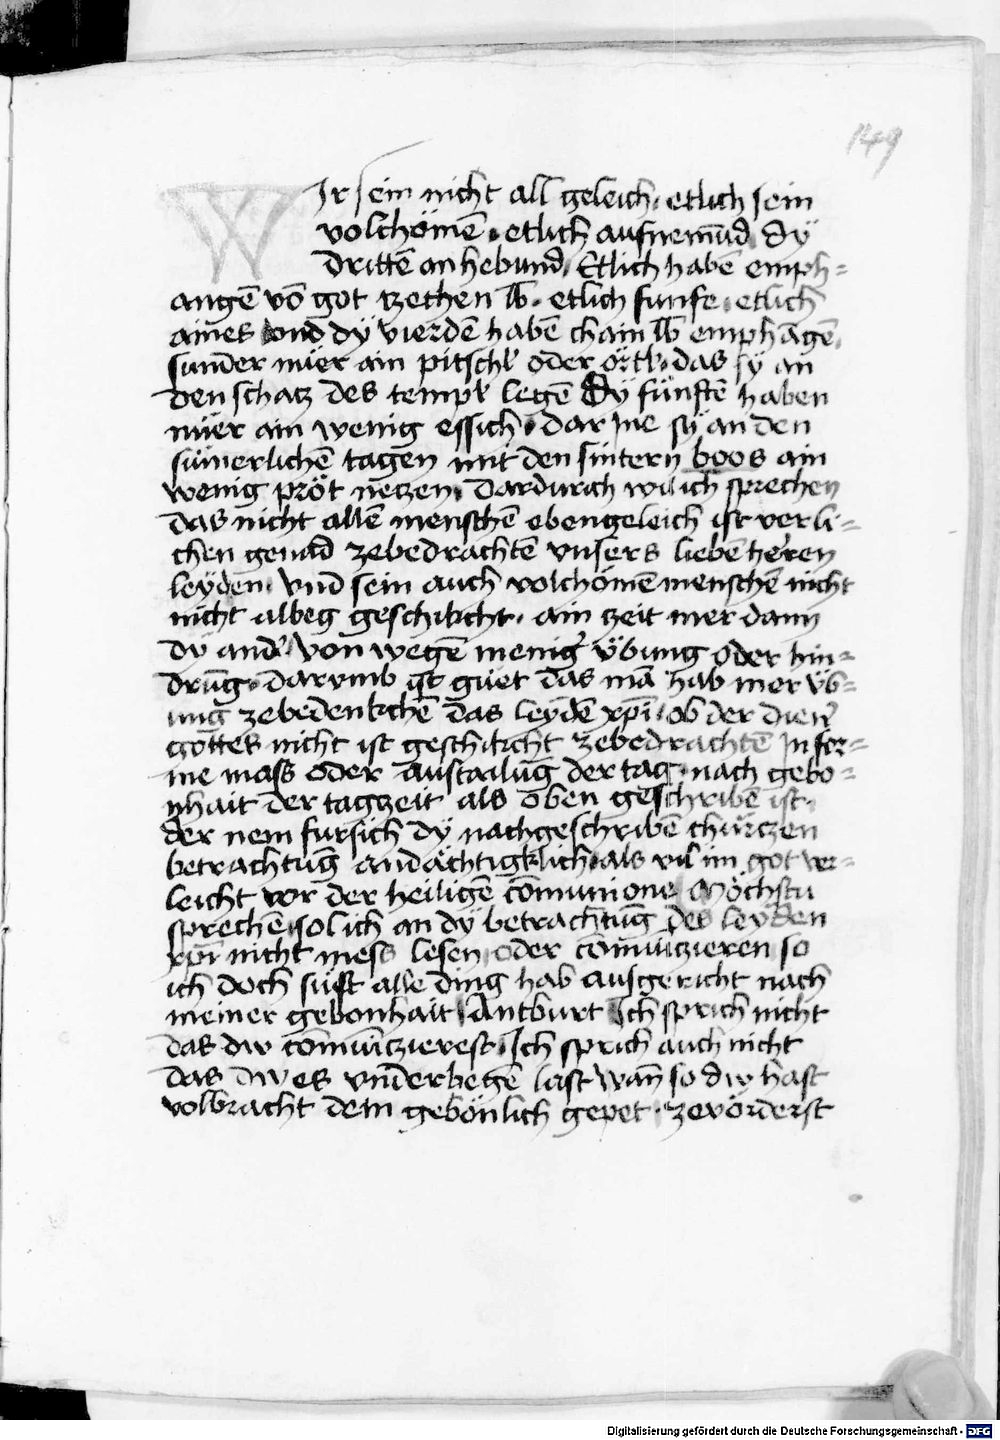 149
WIr sein nicht all geleich · etlich sein
volchömē · etlich aufnemūd dÿ
drittē an hebund · Etlich habē emph=
angē vō got zethen lb · etlich funfe · etlich
aines vnd dÿ vierdē habē chain lb emphāgē
sunder nüer ain pitschl oder örtl · das sÿ an
den schacz des templ legē Dÿ fünftē haben
nüer ain wenig essich · dar jne sÿ an den
sümerlichē tagen mit den sintern boos ain
wenig pröt neczen · Dardurch wil ich sprechen
das nicht allē menschē ebengeleich ist verli=
chen genad zebedrachtē vnsers liebē herren
leÿden · Vnd sein auch volchömē menschē nicht
nicht albeg geschikcht · ain zeit mer dann
dÿ and' · Von wegē menig' übung oder hin=
drūg · darvmb ist güet das mā hab mer üb=
ung zebedenkchē das leÿdē xp̄i · ob der dien'
gottes nicht ist geschikcht zebedrachtē In for=
me mass oder austailūg der tag · nach gebo=
nhait der tagzeit als oben geschribē ist ·
der nem fursich dÿ nachgeschribē chürczen
betrachtūg andächtigklich · als vil im got ver=
leicht vor der heiligē cōmunione Möchstu
sprechē · sol ich an dÿ betrachtūg des leÿden
xp̄i nicht mess lesen · oder cōmūiczieren so
ich doch süst alle ding hab ausgericht nach
meiner gebonhait Antburt Ich sprich nicht
das dw cōmūiczierest · Ich sprich auch nicht
das dw es vnderbegē last wān so dw hast
volbracht dein gebönlich gepet · zevörderst
Digitalisierung gefördert durch die Deutsche Forschungsgemeinschaft - DFG